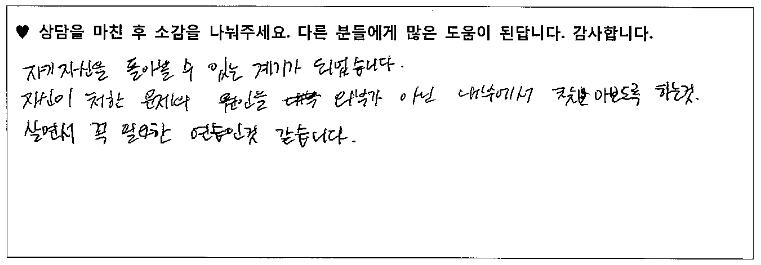 ♥ 상담을 마친 후 소감을 나눠주세요. 다른 분들에게 많은 도움이 된답니다. 감사합니다.
자기자신을 돌아볼 수 있는 계기가 되었습니다.
자신이 처한 문제의 원인을 외부가 아닌 내부에서 찾아보도록 하는것.
살면서 꼭 필요한 연습인것 같습니다.